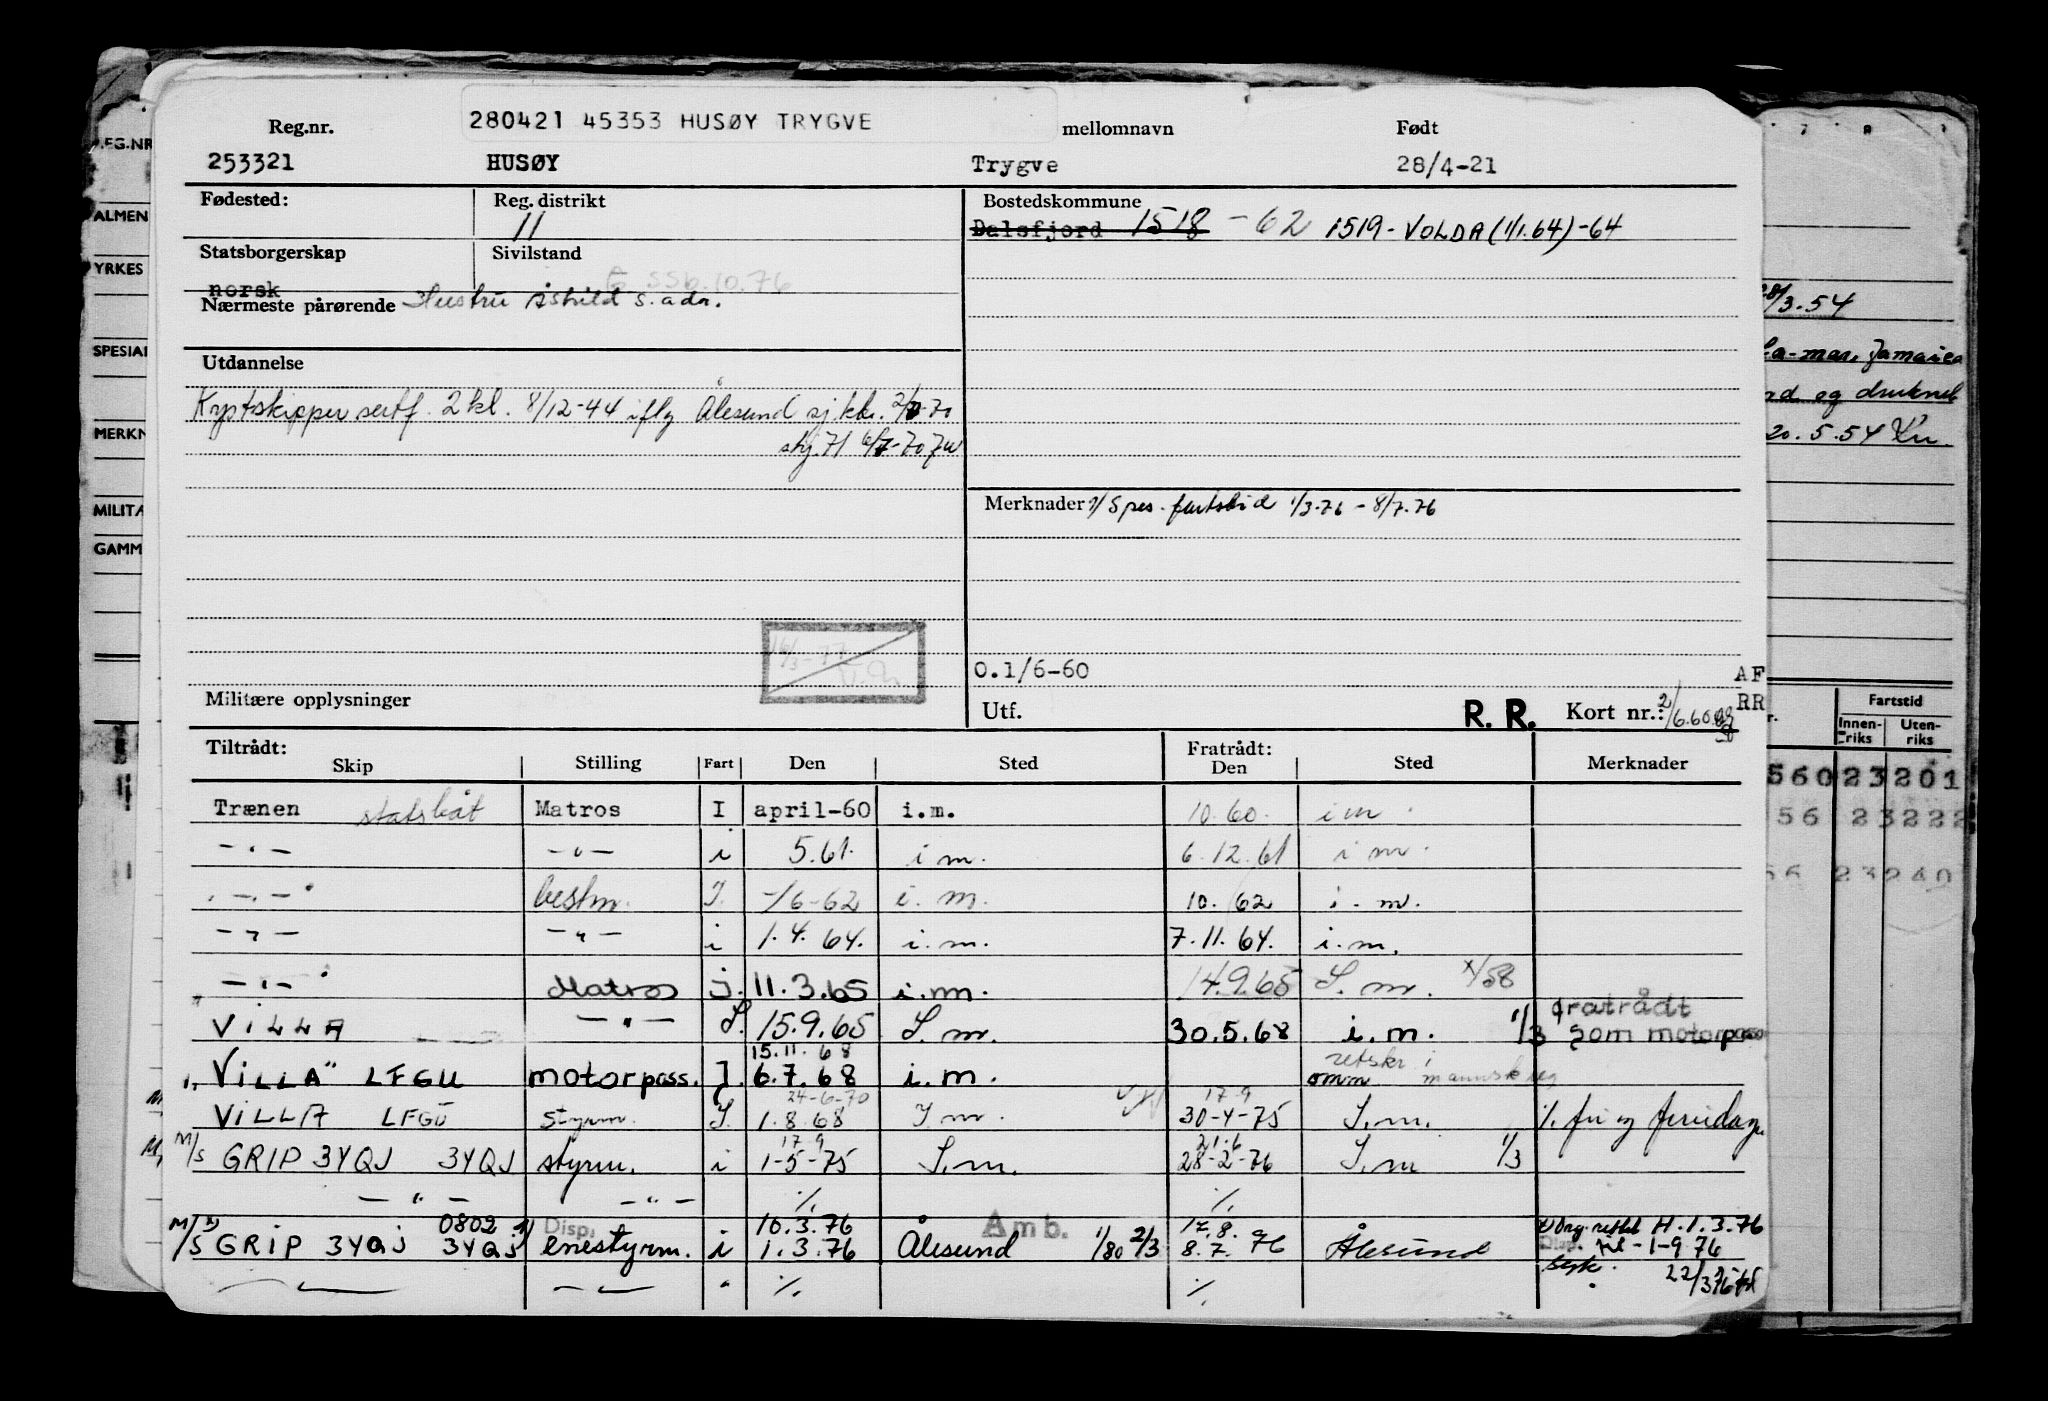 280421 45353 HUSØY TRYGVE
Reg.nr. mellomnavn Født
253321 HUSØY Trygve 28/4-21
Fødested: Reg. distrikt Bostedskommune
11 Dalsfjord 1518 -62 1519-VOLDA (1/1.64)-64
Statsborgerskap Sivilstand
norsk G SSb.10.76
Nærmeste pårørende Hustru Åshild s. adr.
Utdannelse
Kystskipper sertf. 2 kl. 8/12-44 iflg Ålesund sj.ktr.
Merknader 1/ Spes. fartstid 1/3-76 - 8/7.76
16/3-77
O.1/6-60
AF
RR
Militære opplysninger Utf. R. R. Kort nr.: 2/6.60
Tiltrådt: Fratrådt:
Skip Stilling Fart Den Sted Den Sted Merknader
Trænen statsbåt Matros I april-60 i.m. 10.60. i m.
-"- -"- i 5.61. i m. 6.12.61 i m.
-"- bestm. I. -/6-62 i. m. 10. 62 i. m.
-"- -"- i 1.4.64. i.m. 7.11.64. i.m.
-"- Matros j. 11.3.65 i.m. 14.9.65 I. m.
VILLA -"- I. 15.9.65 I. m. 30.5.68 i.m. 1/3 fratrådt som motorpass
15.11.68
"VILLA" LFGU motorpass. J. 6.7.68 i.m. omm retskr i mannsk reg
24-6-70 17-9
VILLA LFGU styrm. I. 1.8.68 I m. 30-4-75 I.m. %. fri og feriedage
17-9 21.6
M/S GRIP 3YQJ 3YQJ styrm. i 1-5-75 I.m. 28-2-76 I.m 1/3
-"- -"- %. %.
0802 Disp. 10.3.76 Amb. 17.8.
M/S GRIP 3YQJ 3YQJ enestyrm. i 1.3.76 Ålesund 1/80 2/3 8.7.76 Ålesund
H.1.3.76
Disp. til -1-9 76
syk. 22/3 76
" %. %.
REG.NR
ALMEN
YRKES
SPESIAL
MERKN
MILITÆ
GAMM
28/3.54
La-mar, Jamaica
og druknet
20.5.54
Fartstid
Innenriks Utenriks
560 23201
56 23222
56 23240